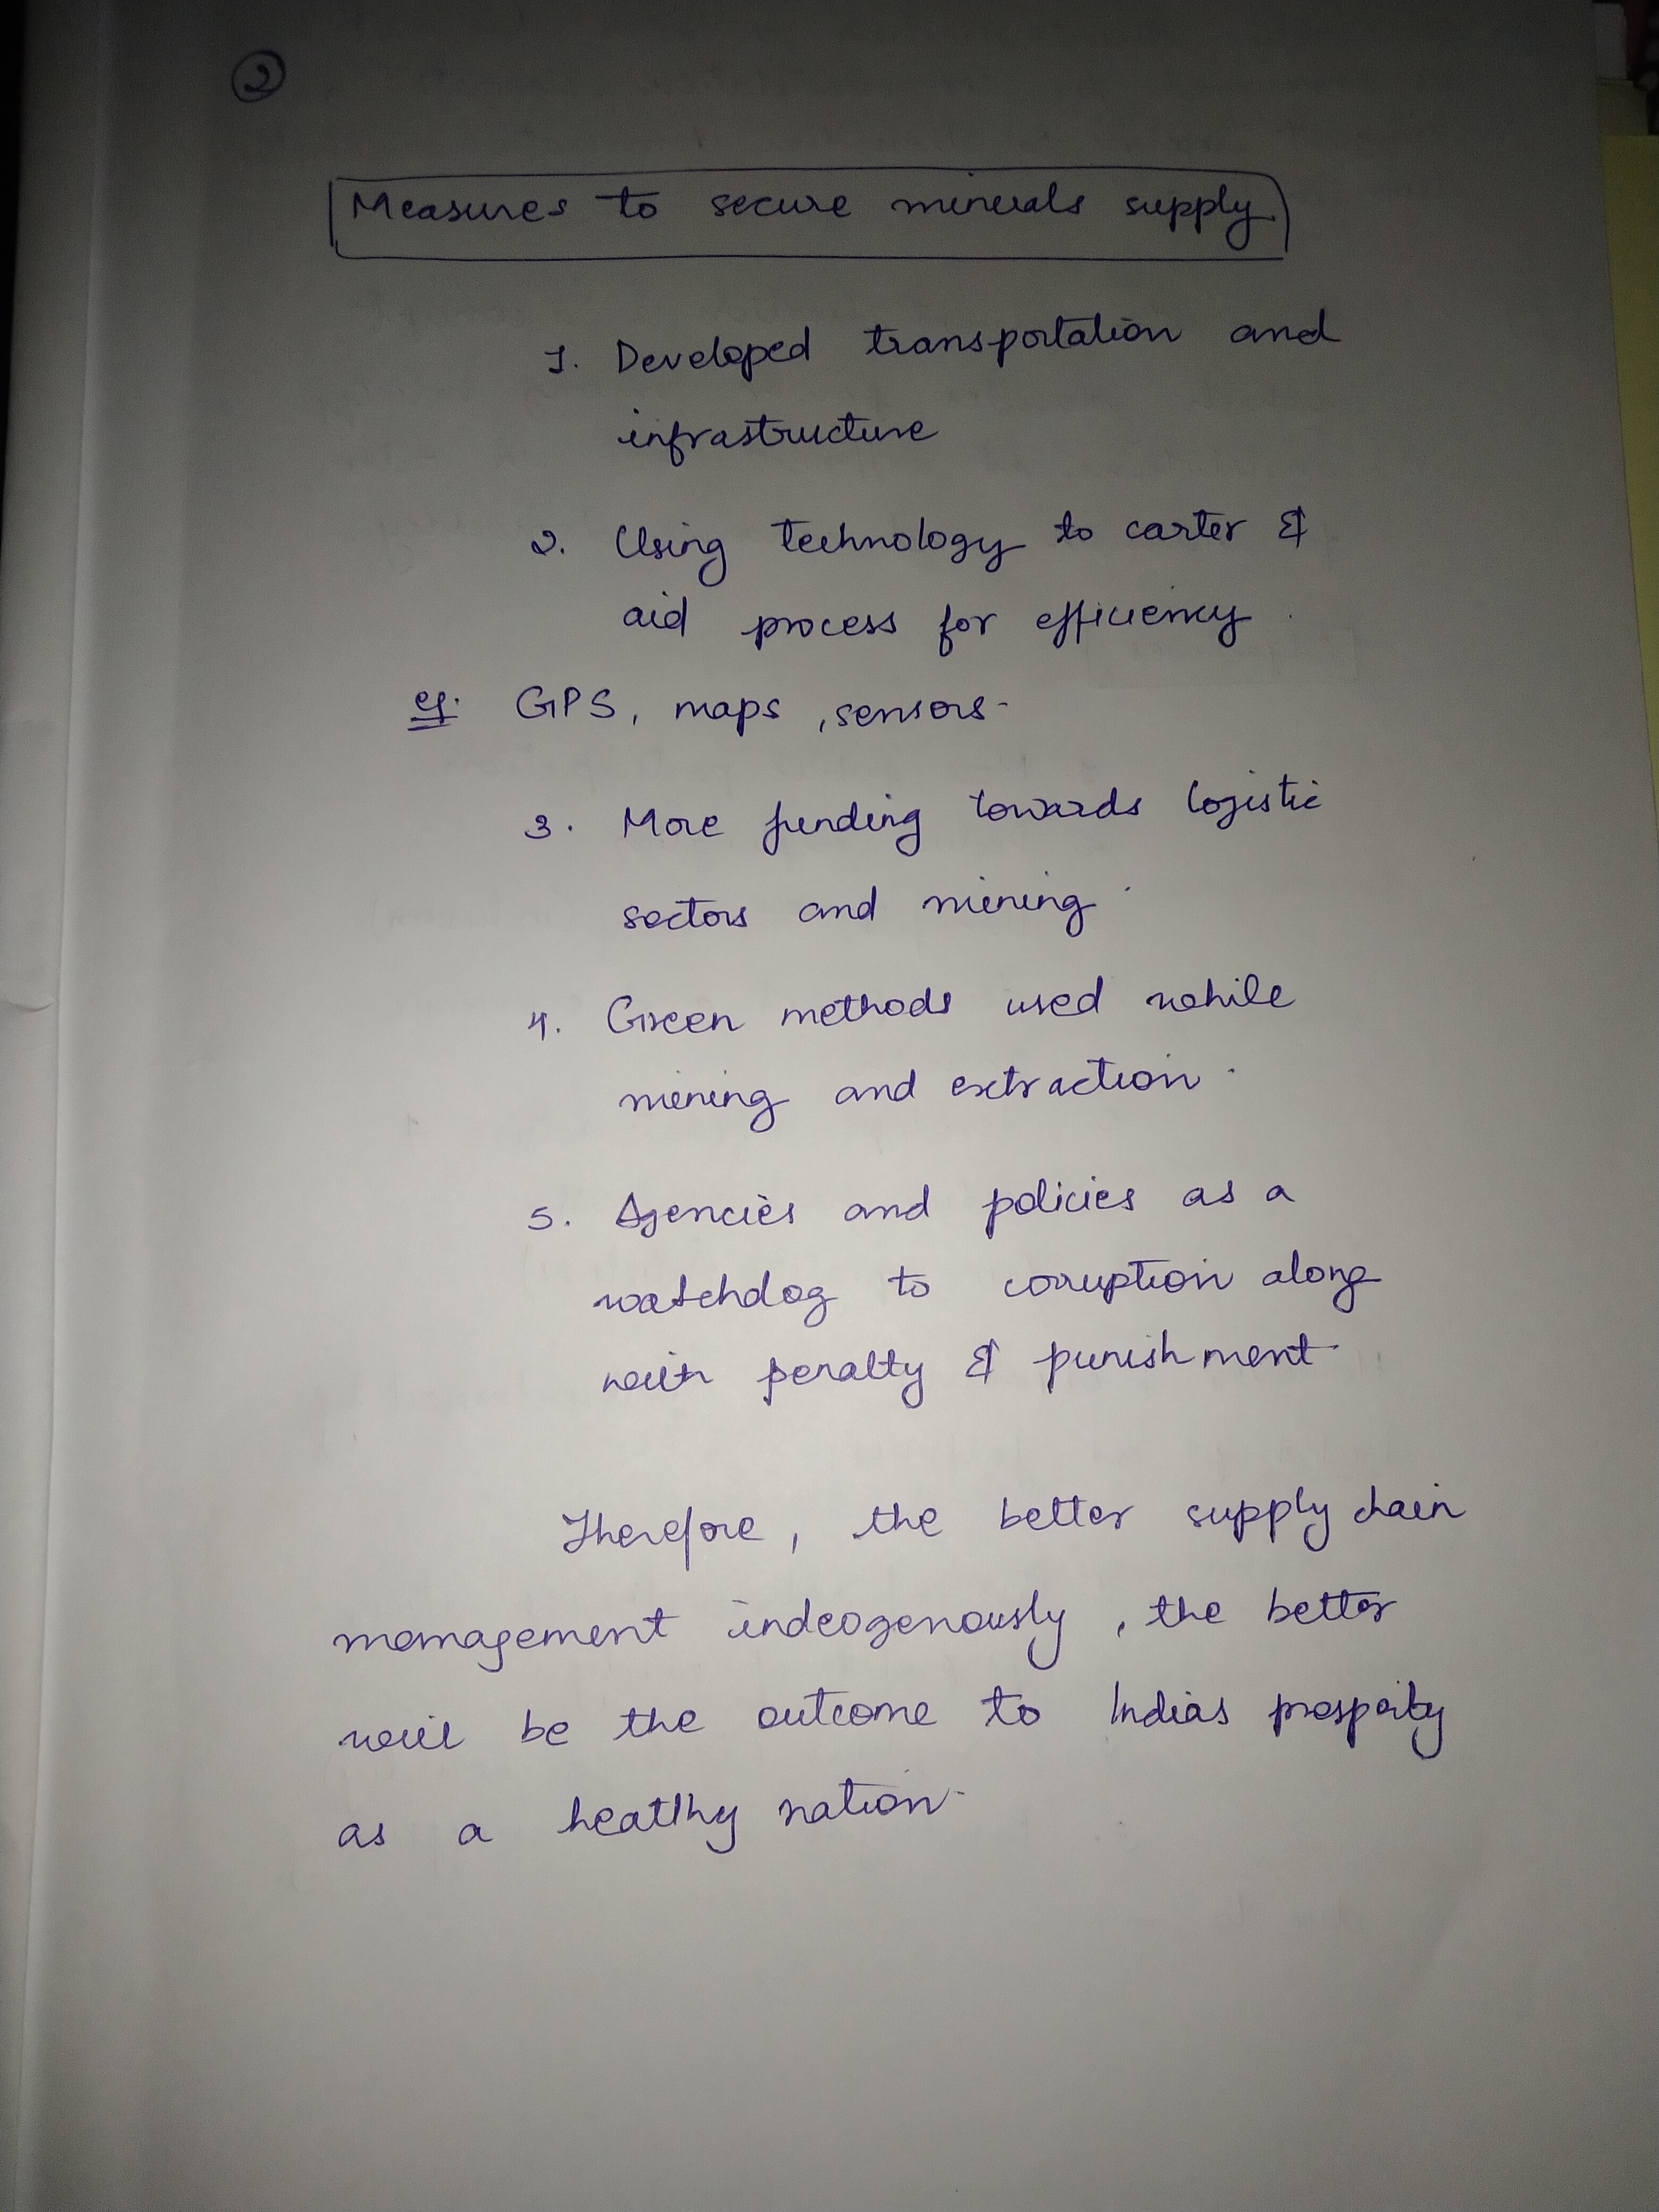 2
Measures to secure minerals supply.
1. Developed transportation and
infrastructure
2. Using technology to carter &
aid process for efficiency.
eg. GPS, maps, sensors.
3. More funding towards logistic
sectors and mining.
4. Green methods used while
mining and extraction.
5. Agencies and policies as a
watchdog to corruption along
with penalty & punishment.
Therefore, the better supply chain
management indeogenously, the better
will be the outcome to India's prosperity
as a heatlhy nation.